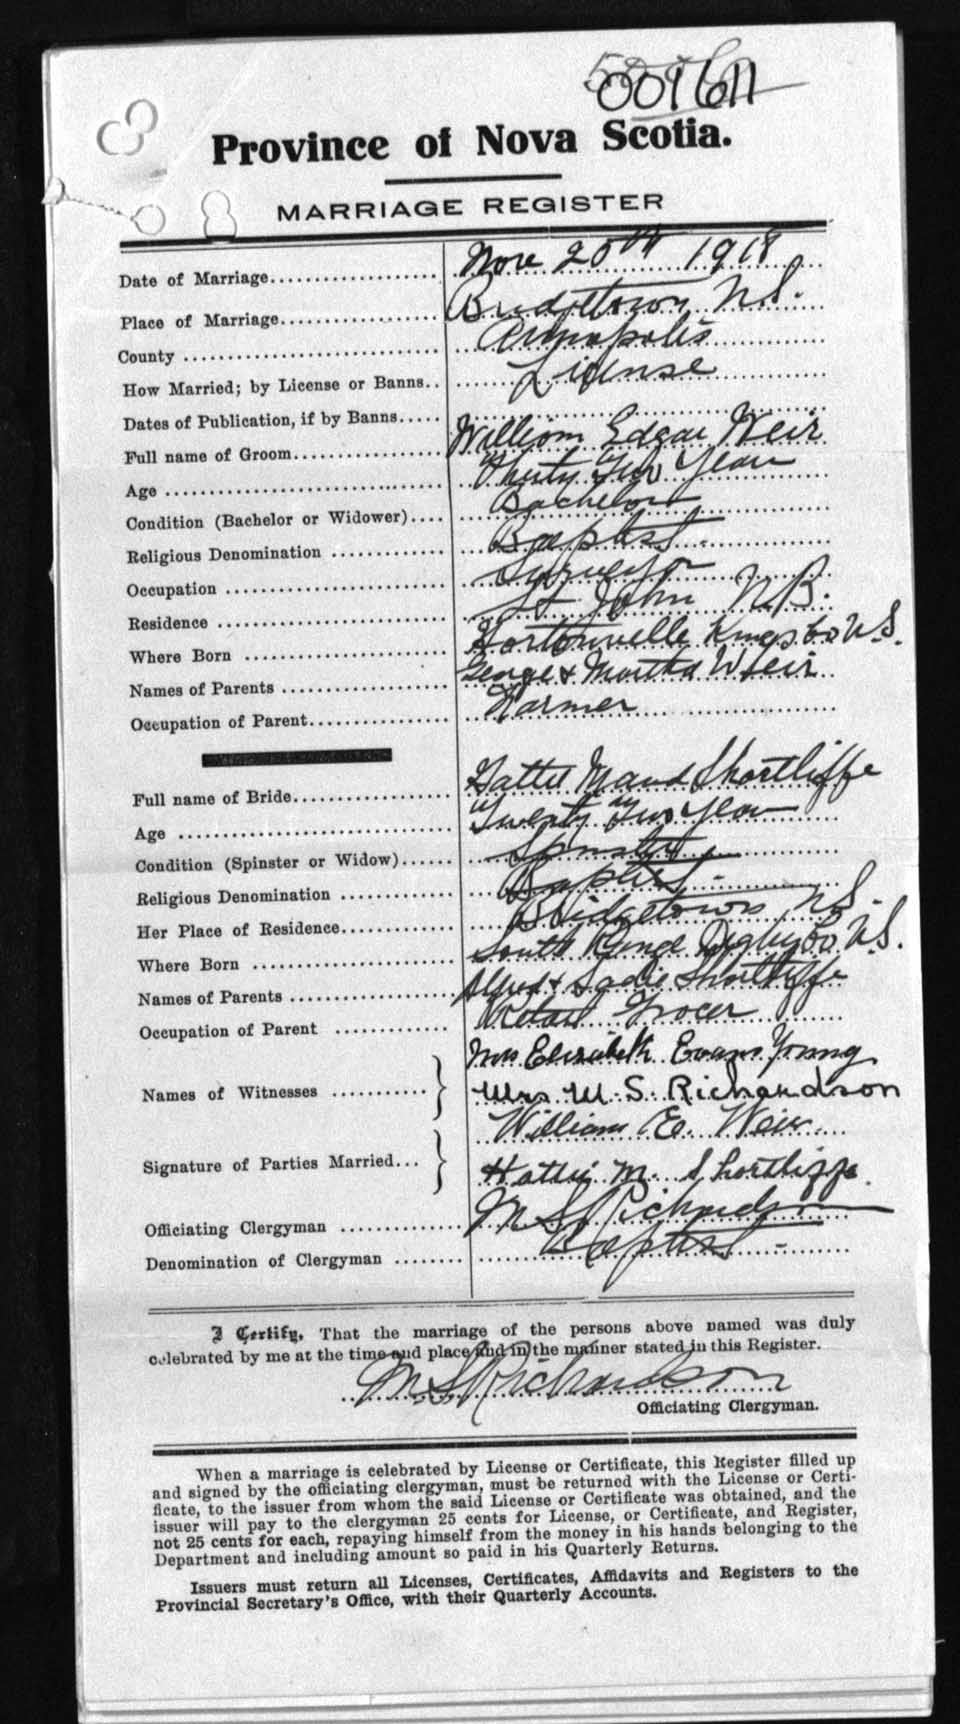 001611
Province of Nova Scotia.
MARRIAGE REGISTER
Date of Marriage Nov 20th 1918
Place of Marriage Bridgetown N.S.
County Annapolis
How Married; by License or Banns License
Dates of Publication, if by Banns
Full name of Groom William Edgar Weir
Age Thirty Two Year
Condition (Bachelor or Widower) Bachelor
Religious Denomination Baptist
Occupation Surveyor
Residence St John N.B.
Where Born Hortonville Kings Co N.S.
Names of Parents George & Martha Weir
Occupation of Parent Farmer
Full name of Bride Hattie Maud Shortliffe
Age Twenty Two Year
Condition (Spinster or Widow) Spinster
Religious Denomination Baptist
Her Place of Residence Bridgetown N.S.
Where Born South Range Digby Co N.S.
Names of Parents Alfred & Sadie Shortliffe
Occupation of Parent Retail Grocer
Names of Witnesses Mrs Elizabeth Evans Young
Mrs. M. S. Richardson
Signature of Parties Married William E. Weir
Hattie M. Shortliffe
Officiating Clergyman M S Richardson
Denomination of Clergyman Baptist
I Certify, That the marriage of the persons above named was duly
celebrated by me at the time and place and in the manner stated in this Register.
M S Richardson
Officiating Clergyman.
When a marriage is celebrated by License or Certificate, this Register filled up
and signed by the officiating clergyman, must be returned with the License or Certi-
ficate, to the issuer from whom the said License or Certificate was obtained, and the
issuer will pay to the clergyman 25 cents for License, or Certificate, and Register,
not 25 cents for each, repaying himself from the money in his hands belonging to the
Department and including amount so paid in his Quarterly Returns.
Issuers must return all Licenses, Certificates, Affidavits and Registers to the
Provincial Secretary's Office, with their Quarterly Accounts.